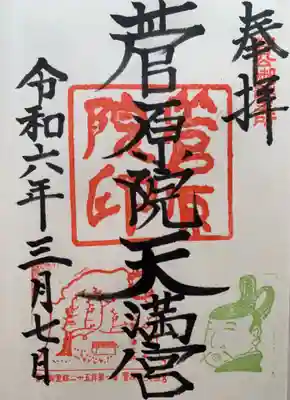 奉拝
菅原院天満宮
令和六年三月七日
菅原
院印